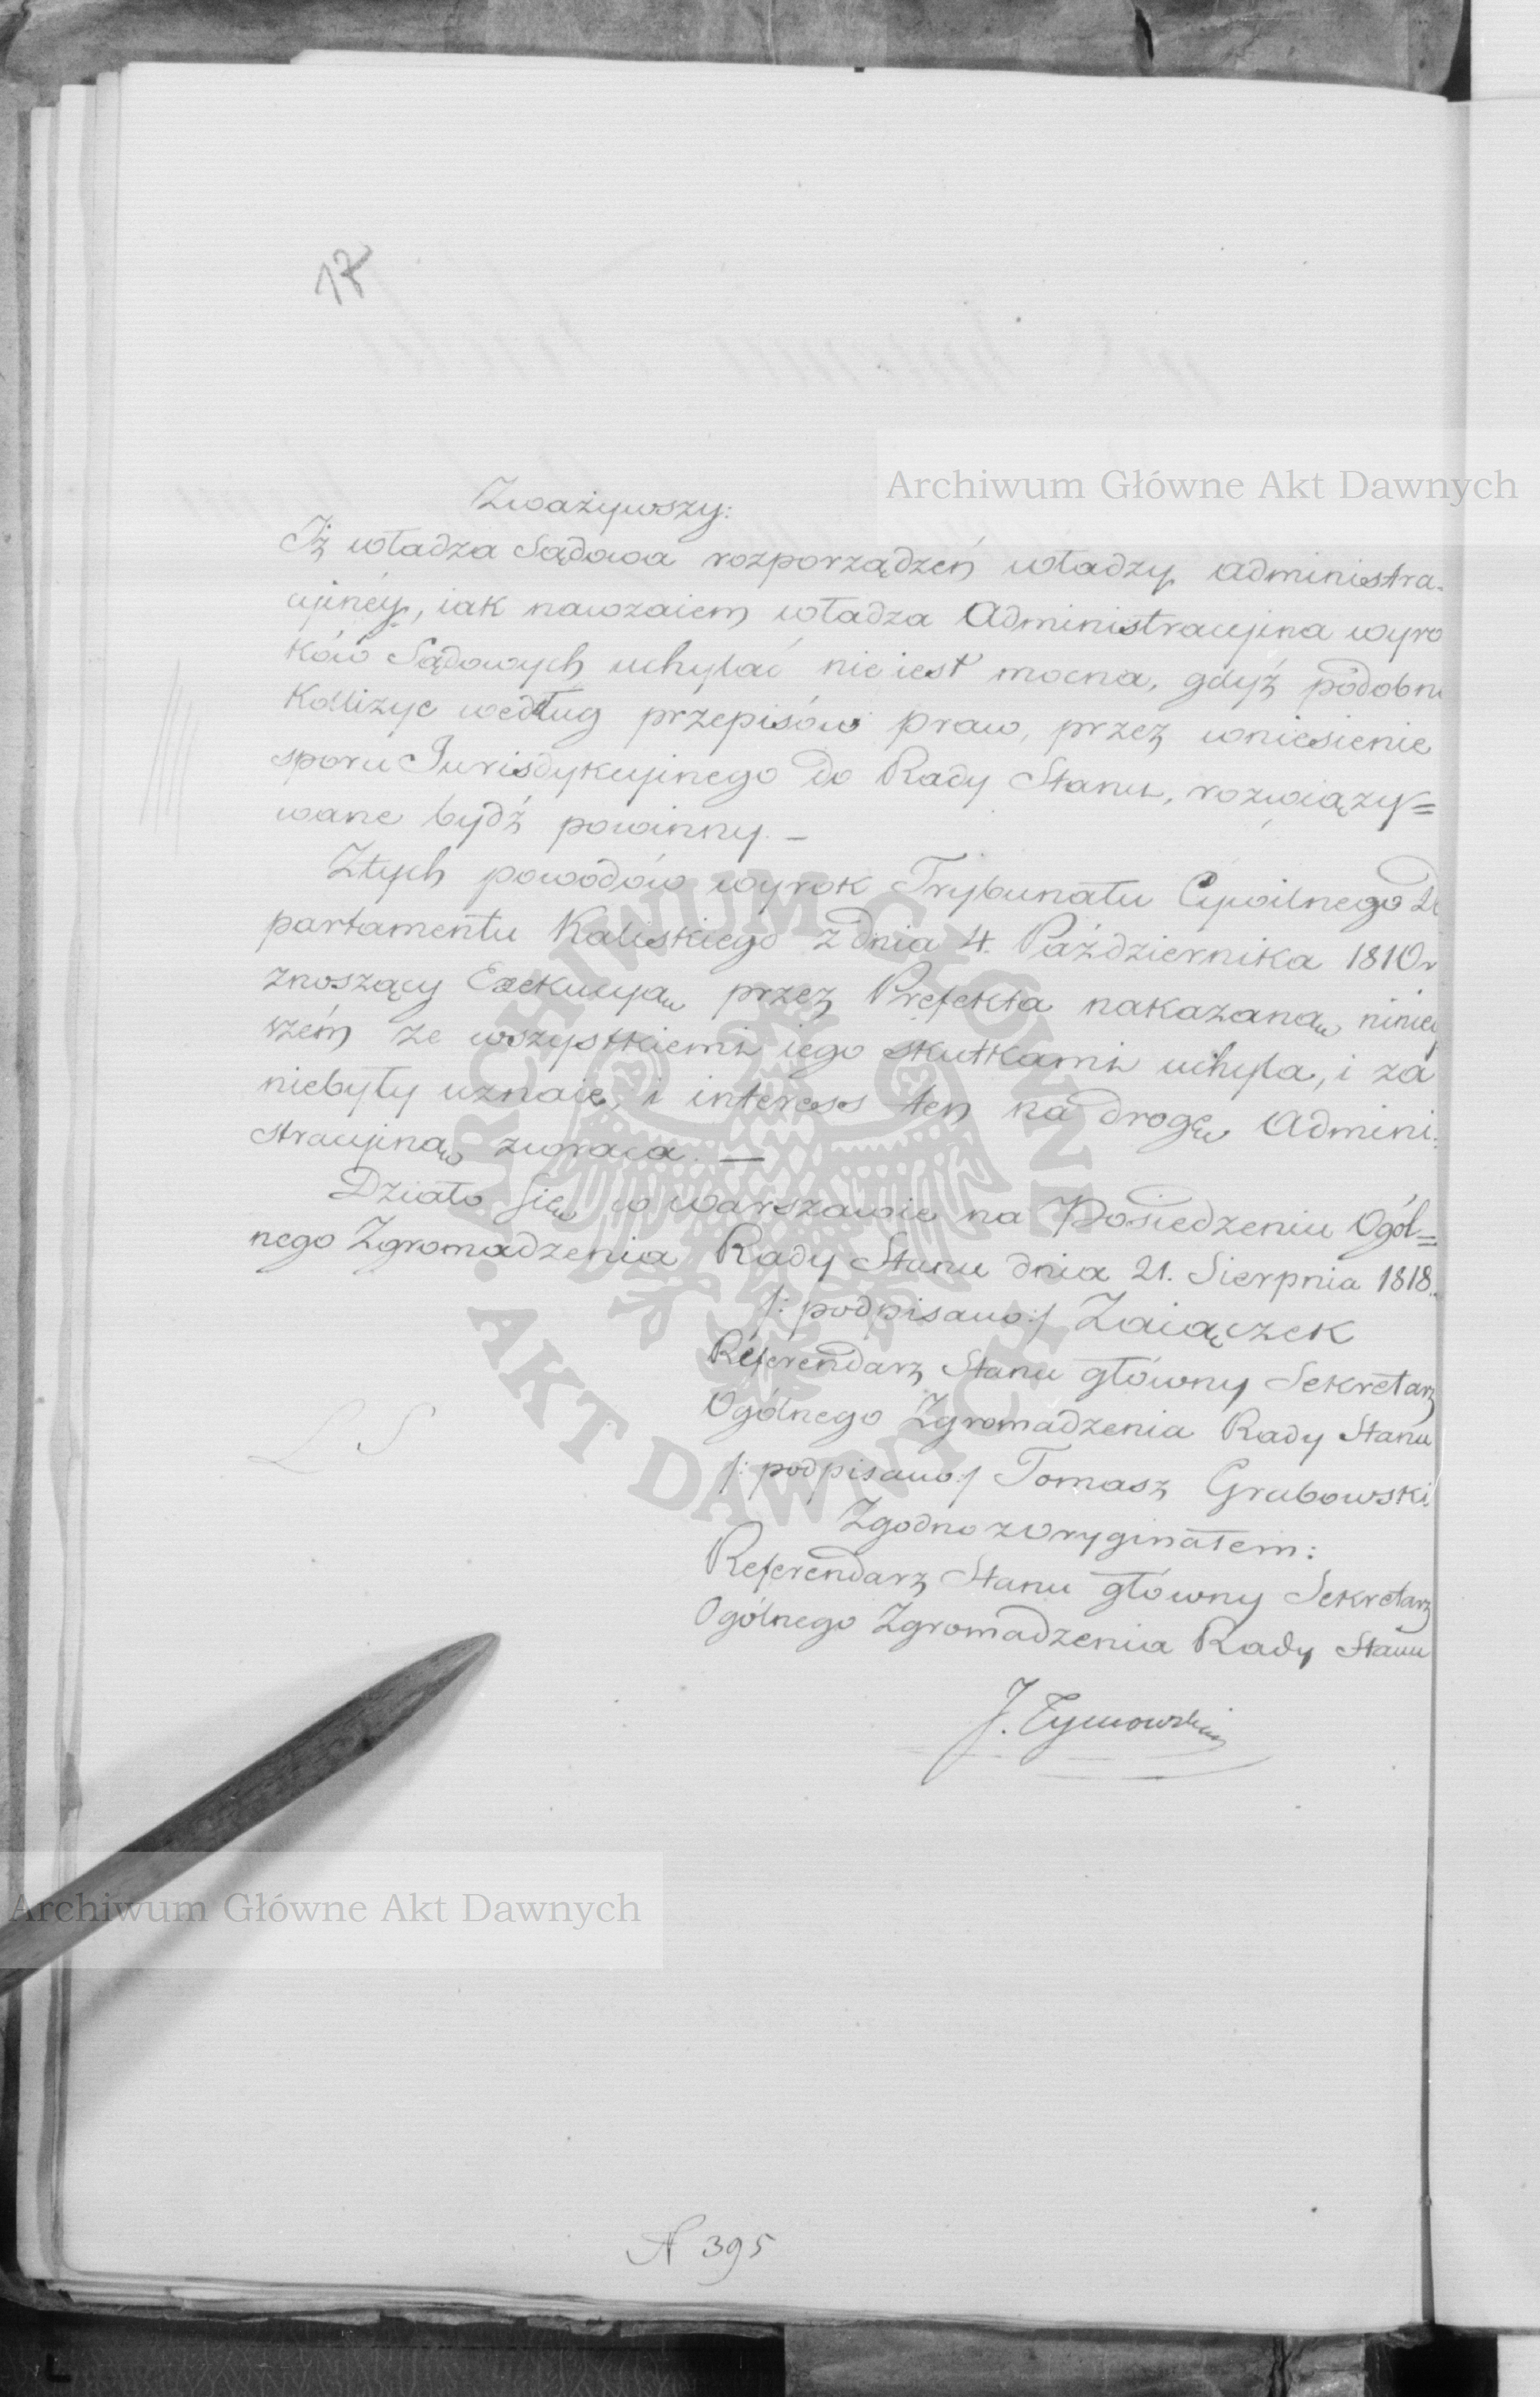 17
Archiwum Główne Akt Dawnych
Zważywszy:
Iż władza Sądowa rozporządzeń władzy administra-
cyjnéy, iak nawzaiem władza Administracyjna wyro
ków Sądowych uchylać nie iest mocna, gdyż podobne
Kollizye według przepisów praw, przez wniesienie
sporu Jurisdykcyjnego do Rady Stanu, rozwiązy=
wane bydź powinny. —
Ztych powodów wyrok Trybunału Cywilnego De
partamentu Kaliskiego z dnia 4. Października 1810 r
znoszący Exekucyą przez Prefekta nakazaną, niniey
szém ze wszystkiemi iego skutkami uchyla, i za
niebyły uznaie, i interess ten na drogę Admini-
stracyjną zwraca. —
Działo Się w Warszawie na Posiedzeniu Ogól=
nego Zgromadzenia Rady Stanu dnia 21. Sierpnia 1818.
/: podpisano :/ Zaiączek
Referendarz Stanu główny Sekretarz
Ogólnego Zgromadzenia Rady Stanu
L S
/: podpisano :/ Tomasz Grabowski
Zgodno z Oryginałem:
Referendarz Stanu główny Sekretarz
Ogólnego Zgromadzenia Rady Stanu
J. Tymowski
ARCHIWUM GŁÓWNE · AKT DAWNYCH ·
Archiwum Główne Akt Dawnych
N 395